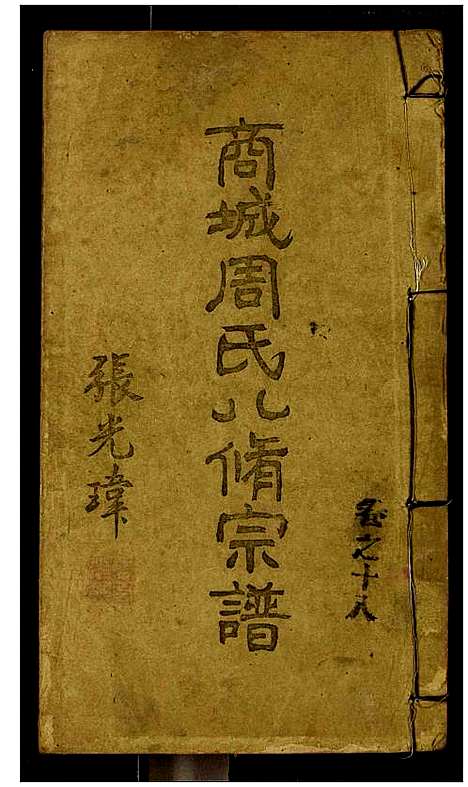 卷之十八
商城周氏八修宗譜
張光瑋